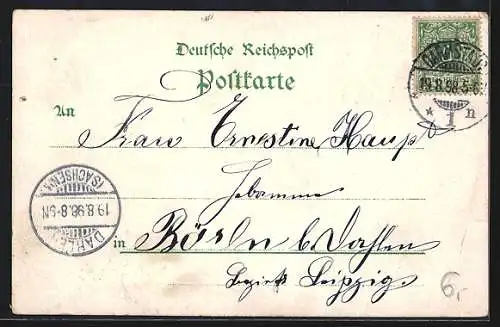 Deutsche Reichspost
Postkarte
An
Frau Ernestine Haupt
Hebamme
in Börln b. Dahlen
Bezirk Leipzig.
19.8.98.5-6
* 1 n
(SACHSEN)
19.8.98.8-9N
DAHLEN
6,-